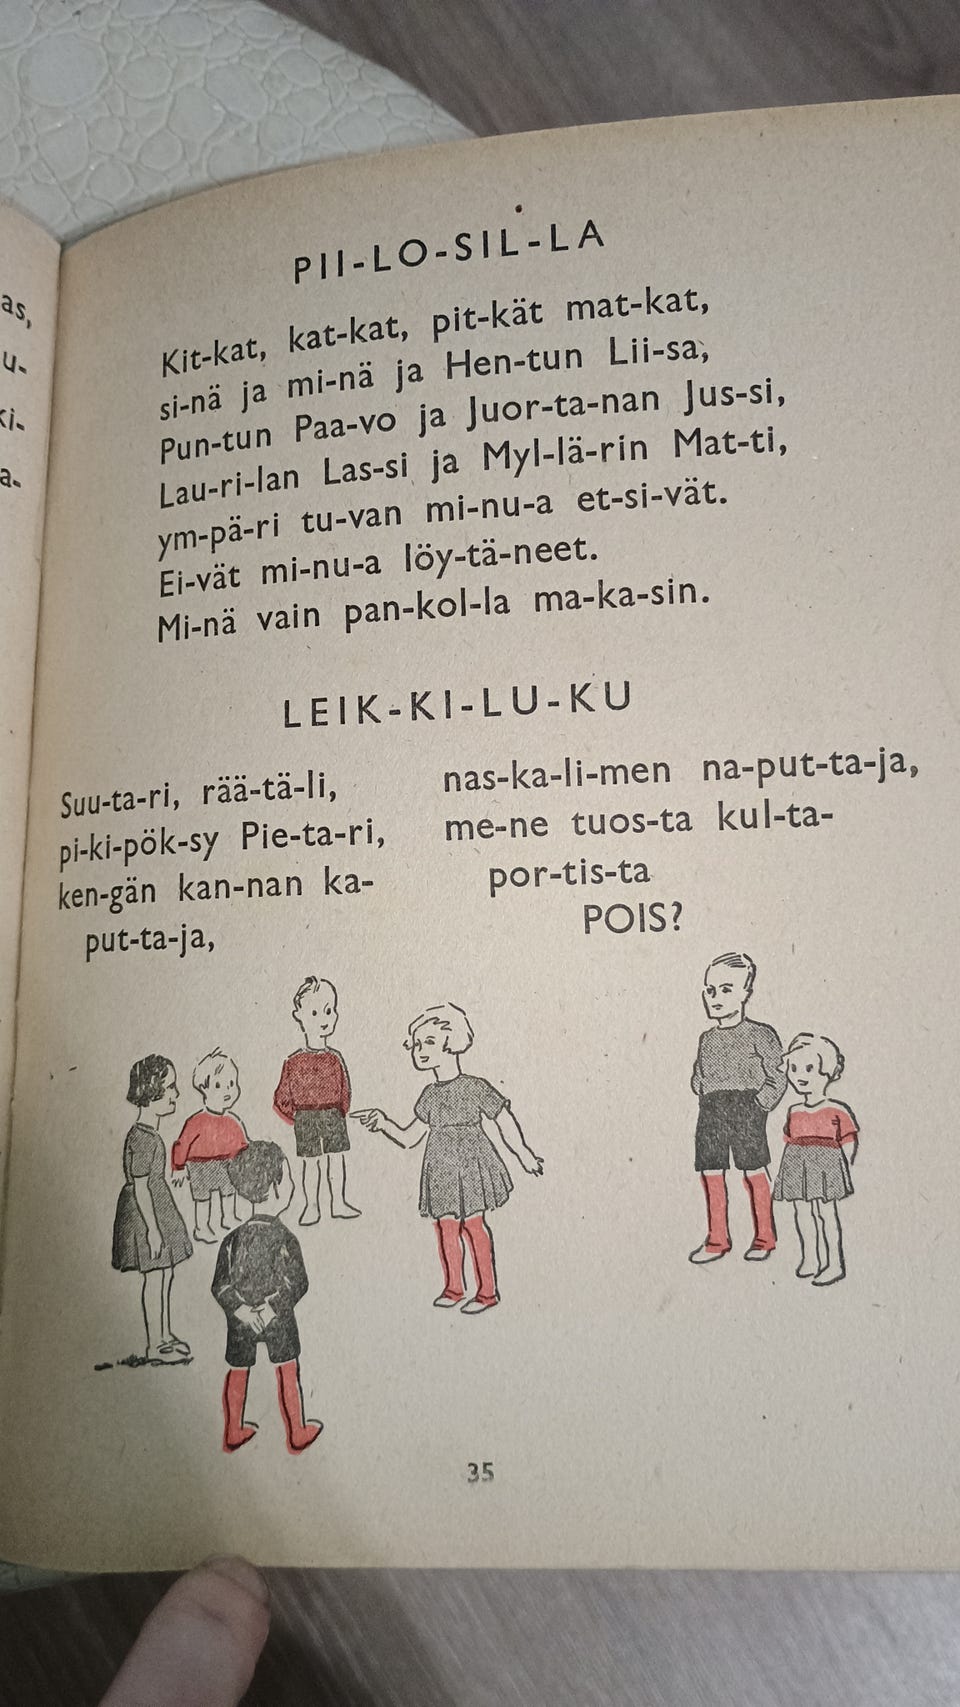 as,
u-
ki-
a-
PII-LO-SIL-LA
Kit-kat, kat-kat, pit-kät mat-kat,
si-nä ja mi-nä ja Hen-tun Lii-sa,
Pun-tun Paa-vo ja Juor-ta-nan Jus-si,
Lau-ri-lan Las-si ja Myl-lä-rin Mat-ti,
ym-pä-ri tu-van mi-nu-a et-si-vät.
Ei-vät mi-nu-a löy-tä-neet.
Mi-nä vain pan-kol-la ma-ka-sin.
LEIK-KI-LU-KU
Suu-ta-ri, rää-tä-li,
pi-ki-pök-sy Pie-ta-ri,
ken-gän kan-nan ka-
put-ta-ja,
nas-ka-li-men na-put-ta-ja,
me-ne tuos-ta kul-ta-
por-tis-ta
POIS?
35